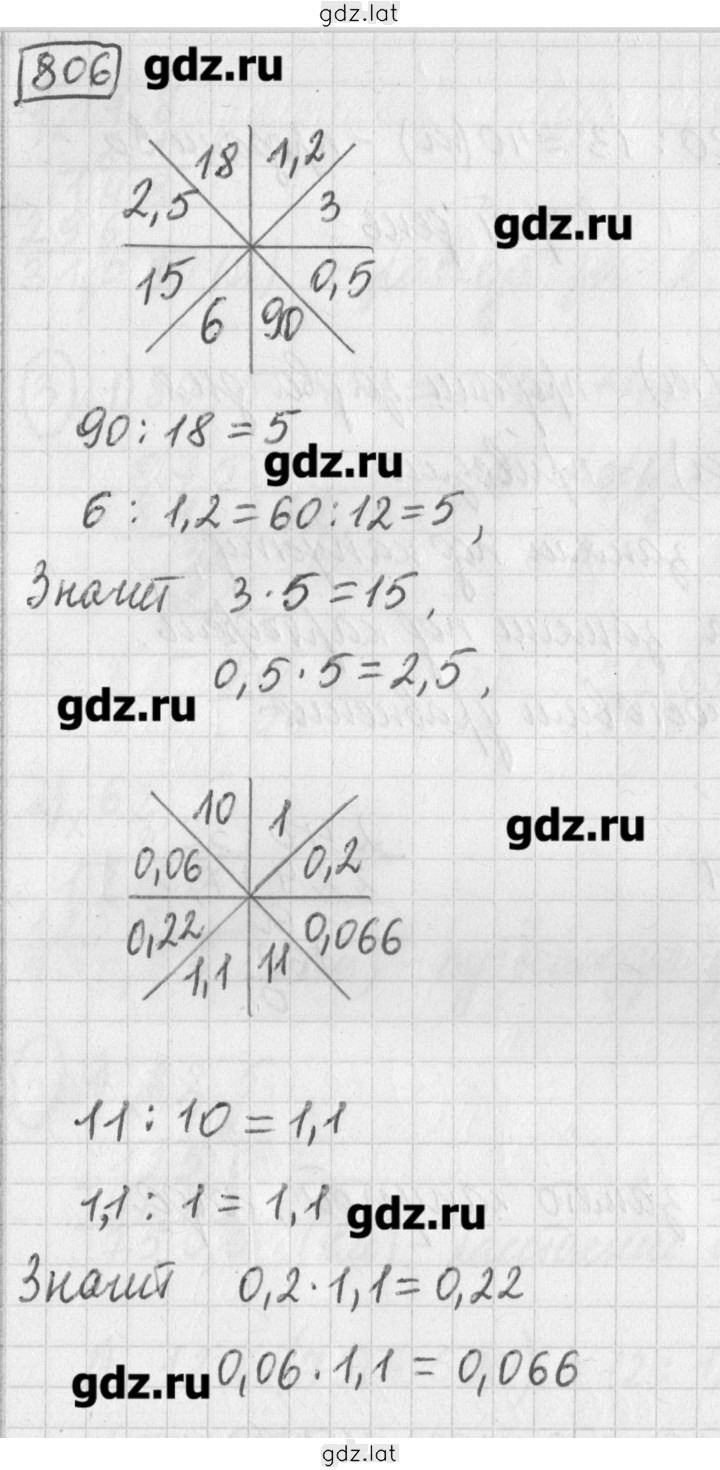 gdz.lat
806 gdz.ru
18 1,2
2,5 3
gdz.ru
15 0,5
6 90
90 : 18 = 5
gdz.ru
6 : 1,2 = 60 : 12 = 5,
Значит 3 · 5 = 15,
0,5 · 5 = 2,5,
gdz.ru
10 1
gdz.ru
0,06 0,2
0,22 0,066
1,1 11
11 : 10 = 1,1
1,1 : 1 = 1,1
gdz.ru
Значит 0,2 · 1,1 = 0,22
0,06 · 1,1 = 0,066
gdz.ru
gdz.lat